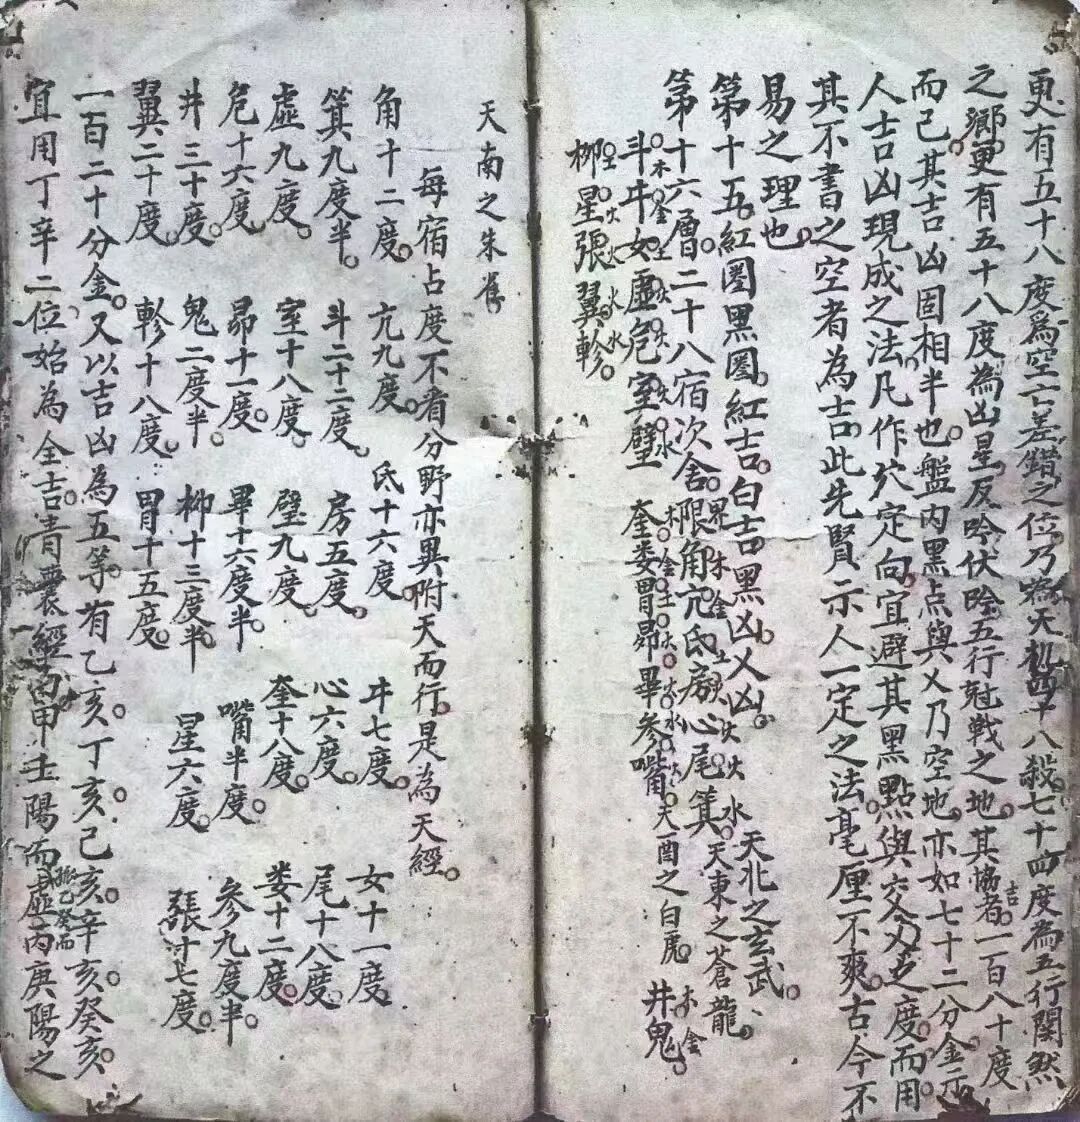 更有五十八度為空亡差錯之位。乃為天机四十八殺七十四度為五行関煞
之鄉。更有五十八度為凶星。反吟伏吟五行尅戰之地。其協吉者。一百八十度
而己。其吉凶固相半也。盤内黑点與乂乃空地。亦如七十二分金示
人吉凶現成之法。凡作穴定向。宜避其黑點與交乂之度。而用
其不書之空者為吉。此先賢示人一定之法。毫厘不爽。古今不
易之理也。
第十五。紅圈黑圈。紅吉。白吉。黑凶。乂凶。
第十六層。二十八宿次舍。界限。角亢氐房心尾箕。天東之蒼龍。
斗牛女虛危室壁 天北之玄武。
奎娄胃昴畢參嘴。天酉之白虎。井鬼
柳星張翼軫。
天南之朱雀
每宿占度不者分野亦異。附天而行。是為天經。
角十二度。亢九度。氐十六度。牛七度。女十一度
箕九度半。斗二十二度。房五度。心六度。尾十八度。
虛九度。室十八度。壁九度。奎十八度。娄十二度。
危十六度。昴十一度。畢十六度半。嘴半度。參九度半。
井三十度。鬼二度半。柳十三度半。星六度。張十七度。
翼二十度。軫十八度。胃十五度。
一百二十分金。又以吉凶為五等。有乙亥。丁亥。己亥。辛亥。癸亥。
宜用丁辛二位。始為全吉。青囊經丙甲壬陽而虛丙庚陽之